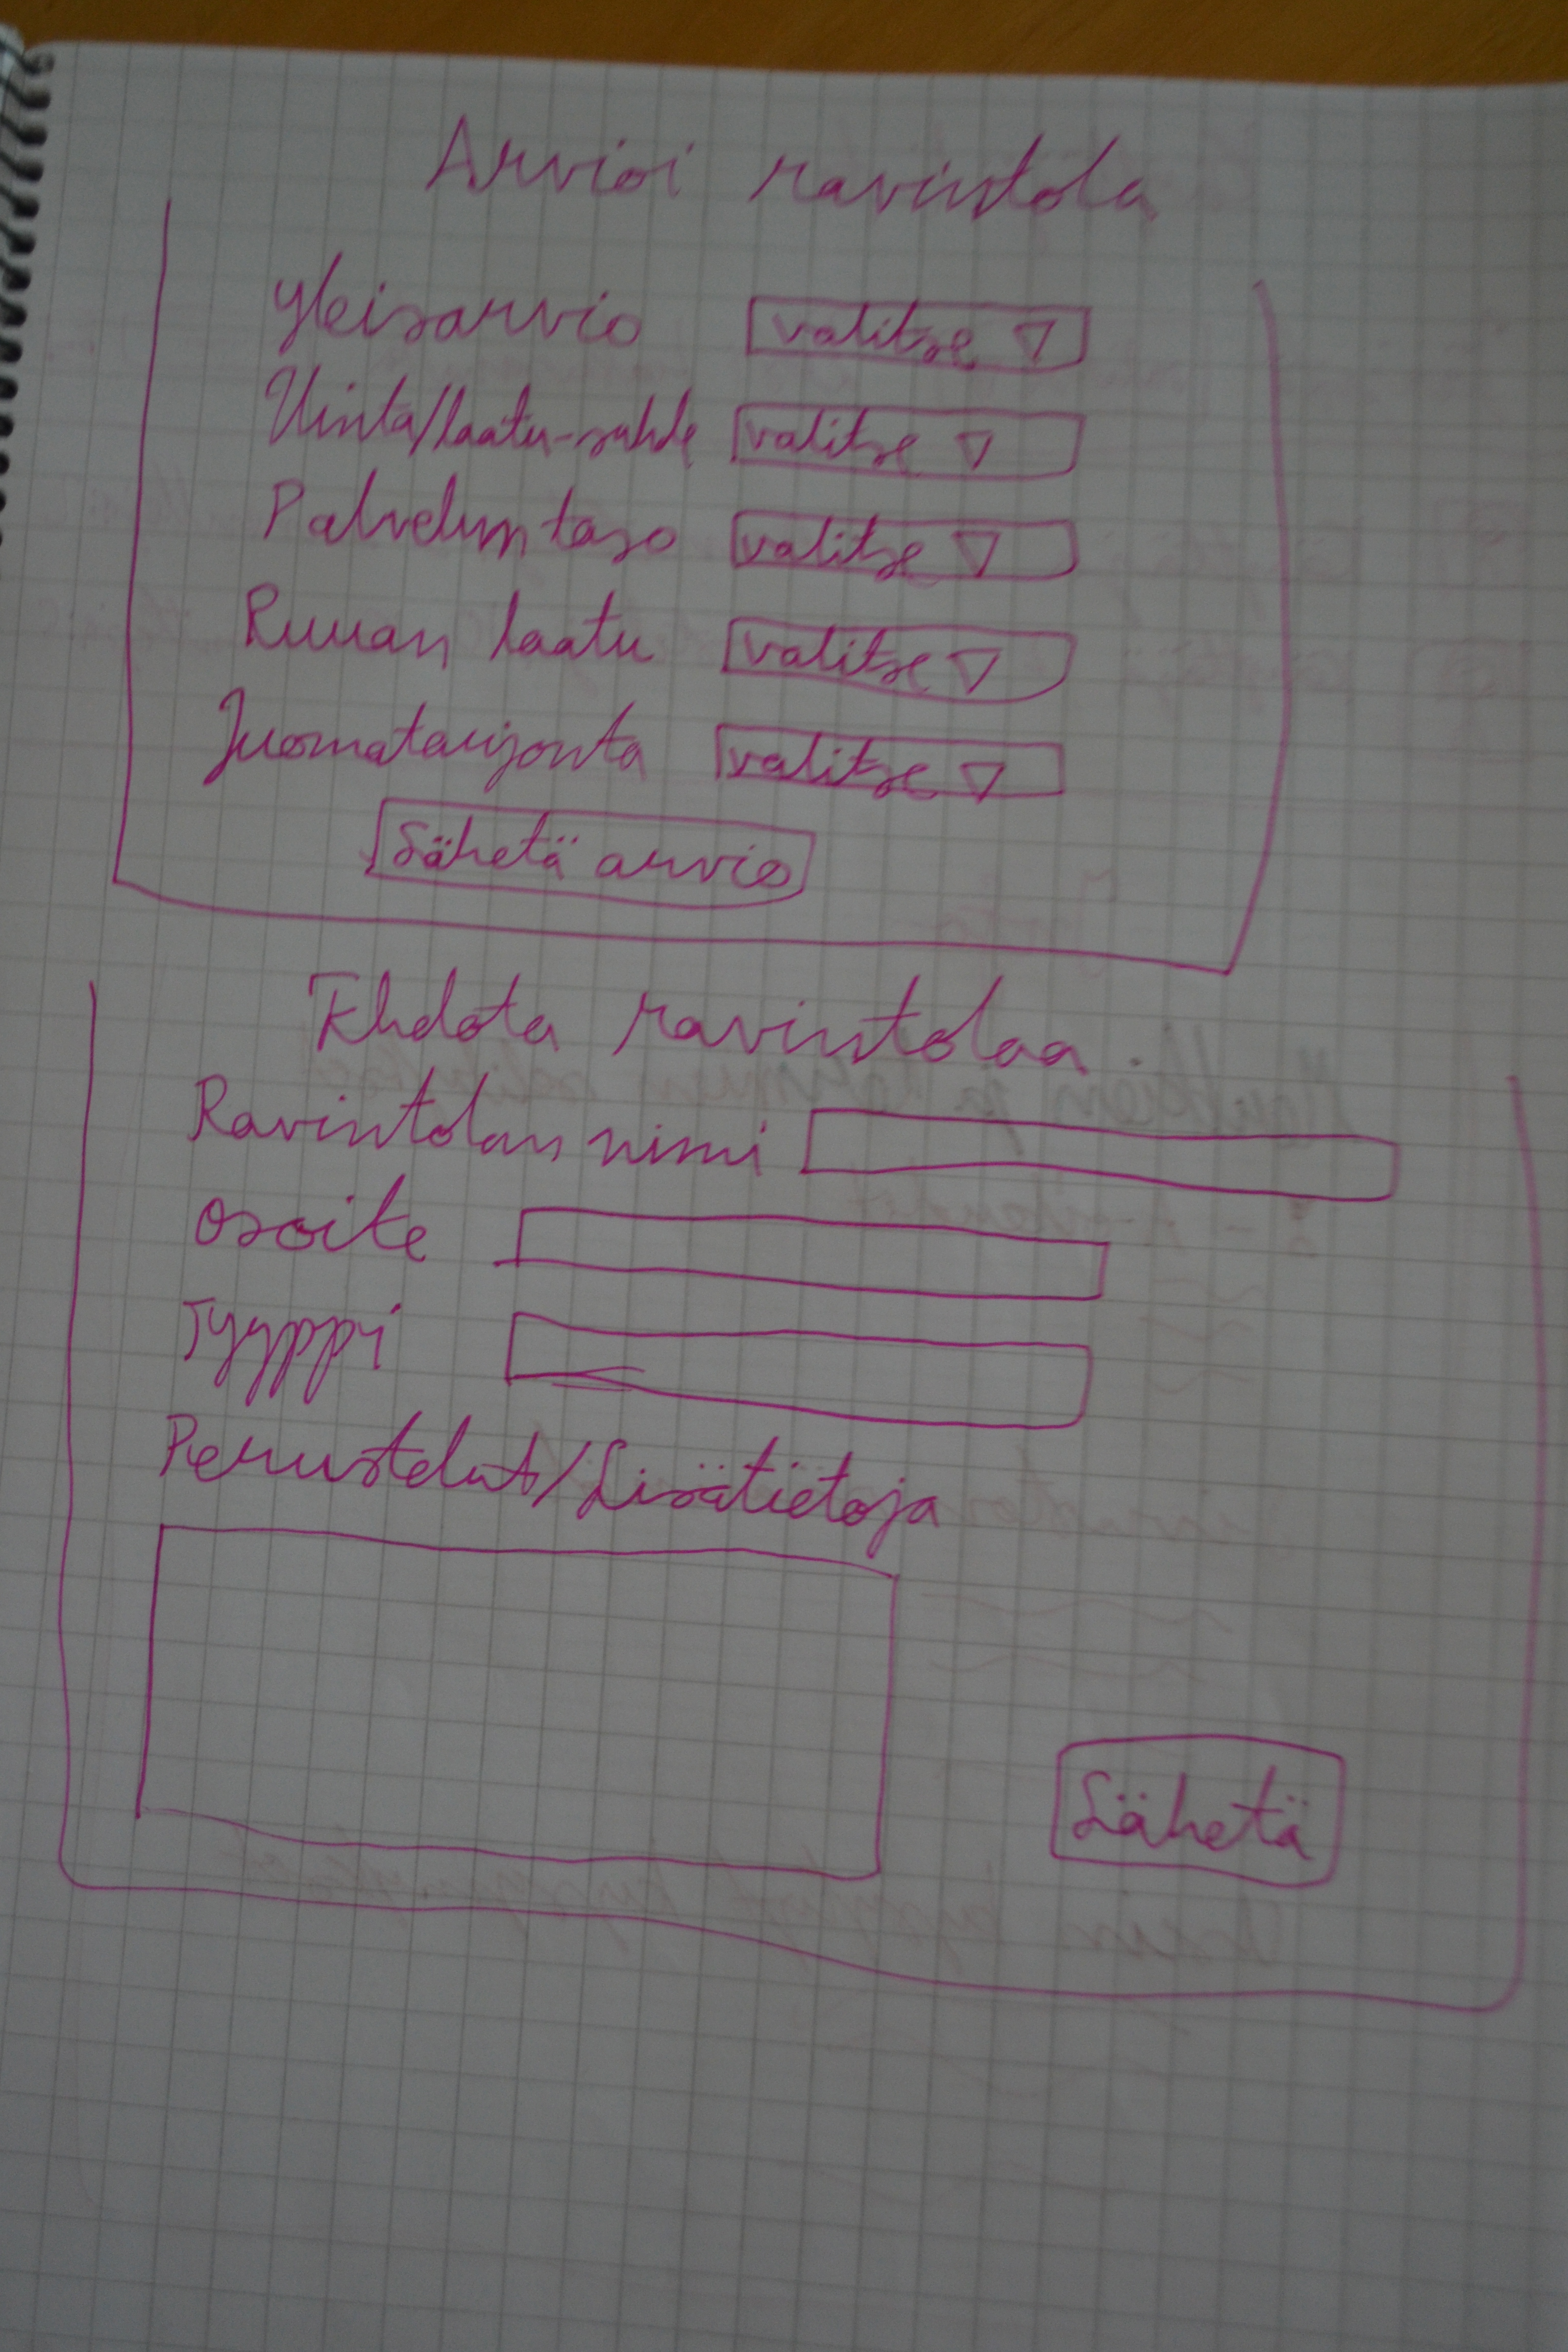 Arvioi ravintola
Yleisarvio valitse
Hinta/laatu-suhde valitse
Palvelun taso valitse
Ruuan laatu valitse
Juomatarjonta valitse
Lähetä arvio
Ehdota ravintolaa
Ravintolan nimi
Osoite
Tyyppi
Perustelut/Lisätietoja
Lähetä